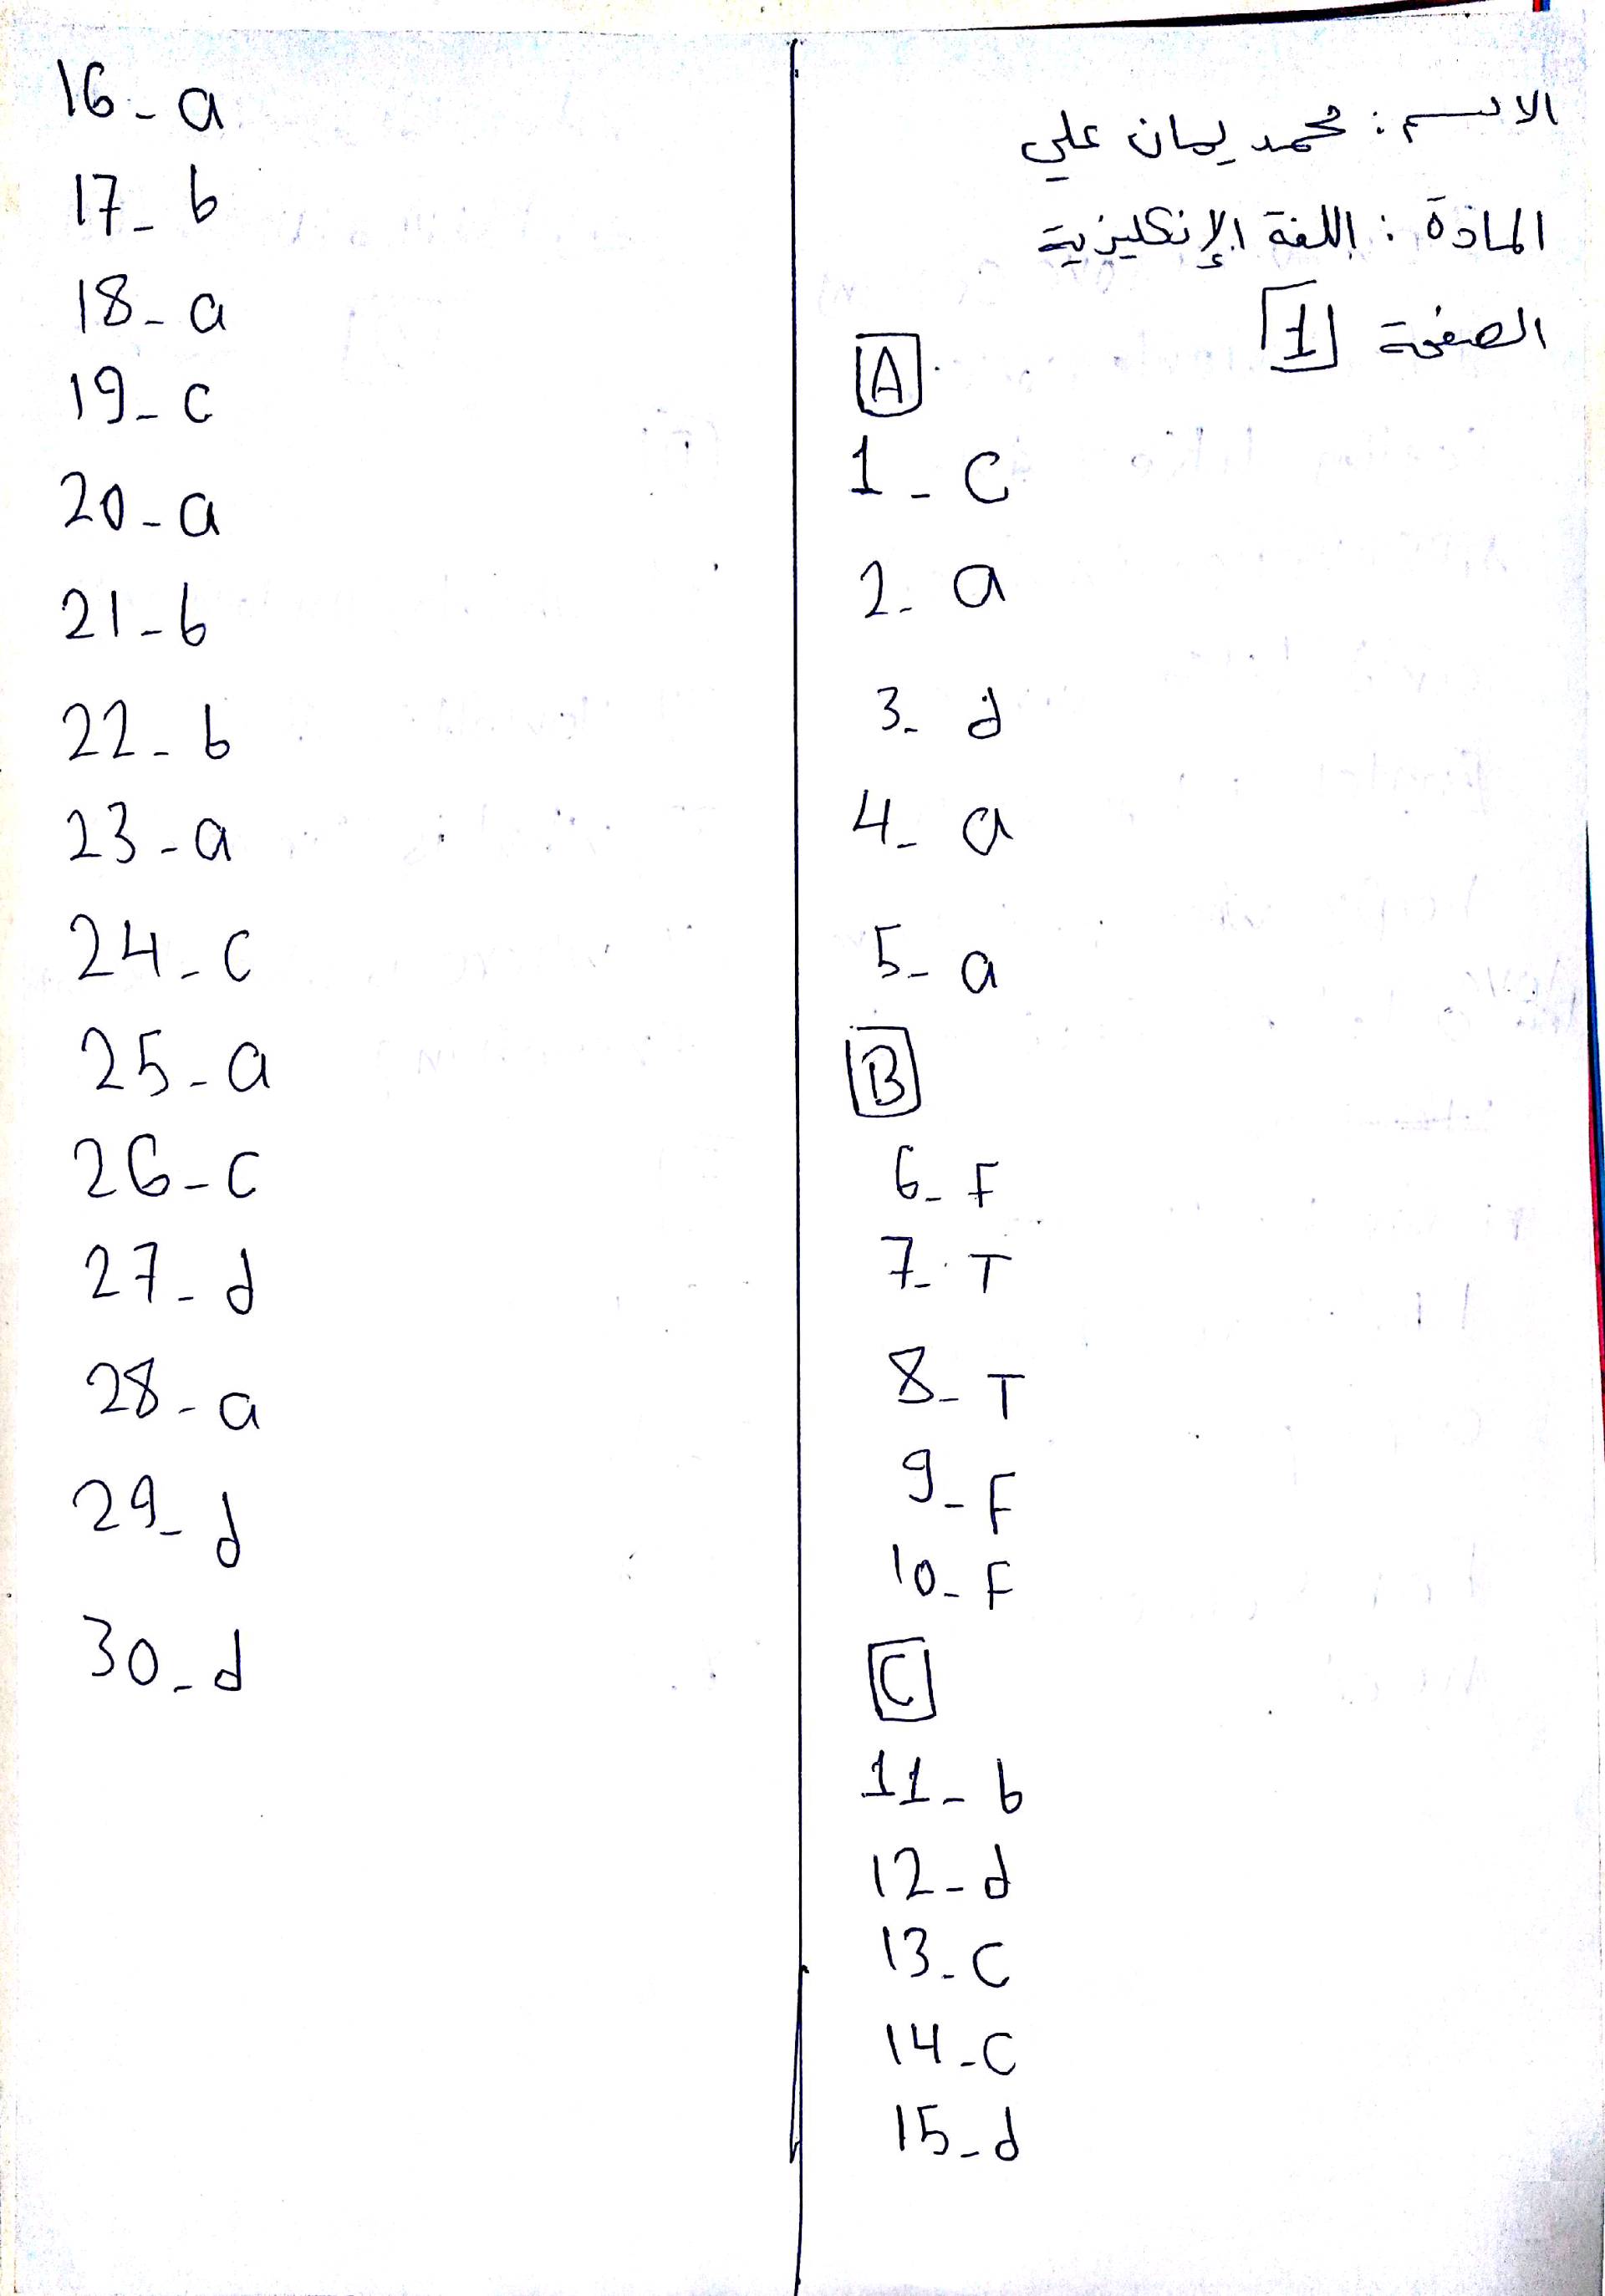 الاسم : محمد يمان علي
المادة : اللغة الإنكليزية
الصفحة 1
A
1 - c
2 - a
3 - d
4 - a
5 - a
B
6 - F
7 - T
8 - T
9 - F
10 - F
C
11 - b
12 - d
13 - c
14 - c
15 - d
16 - a
17 - b
18 - a
19 - c
20 - a
21 - b
22 - b
23 - a
24 - c
25 - a
26 - c
27 - d
28 - a
29 - d
30 - d